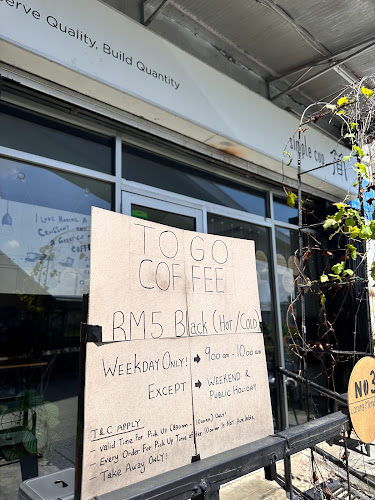 serve Quality, Build Quantity
simple cup
I Love Having a
Croissant and
a Great Cup
Coffee
TO GO
COFFEE
RM5 Black (Hot/Cold)
WEEKDAY ONLY! → 9:00am - 10:00am
EXCEPT → WEEKEND &
PUBLIC HOLIDAY
T&C APPLY
- Valid Time For Pick Up (830am - 10:00am) Only!
- Every Order For Pick Up Time after 10:00am is Not Available.
- Take Away Only!
NO 3